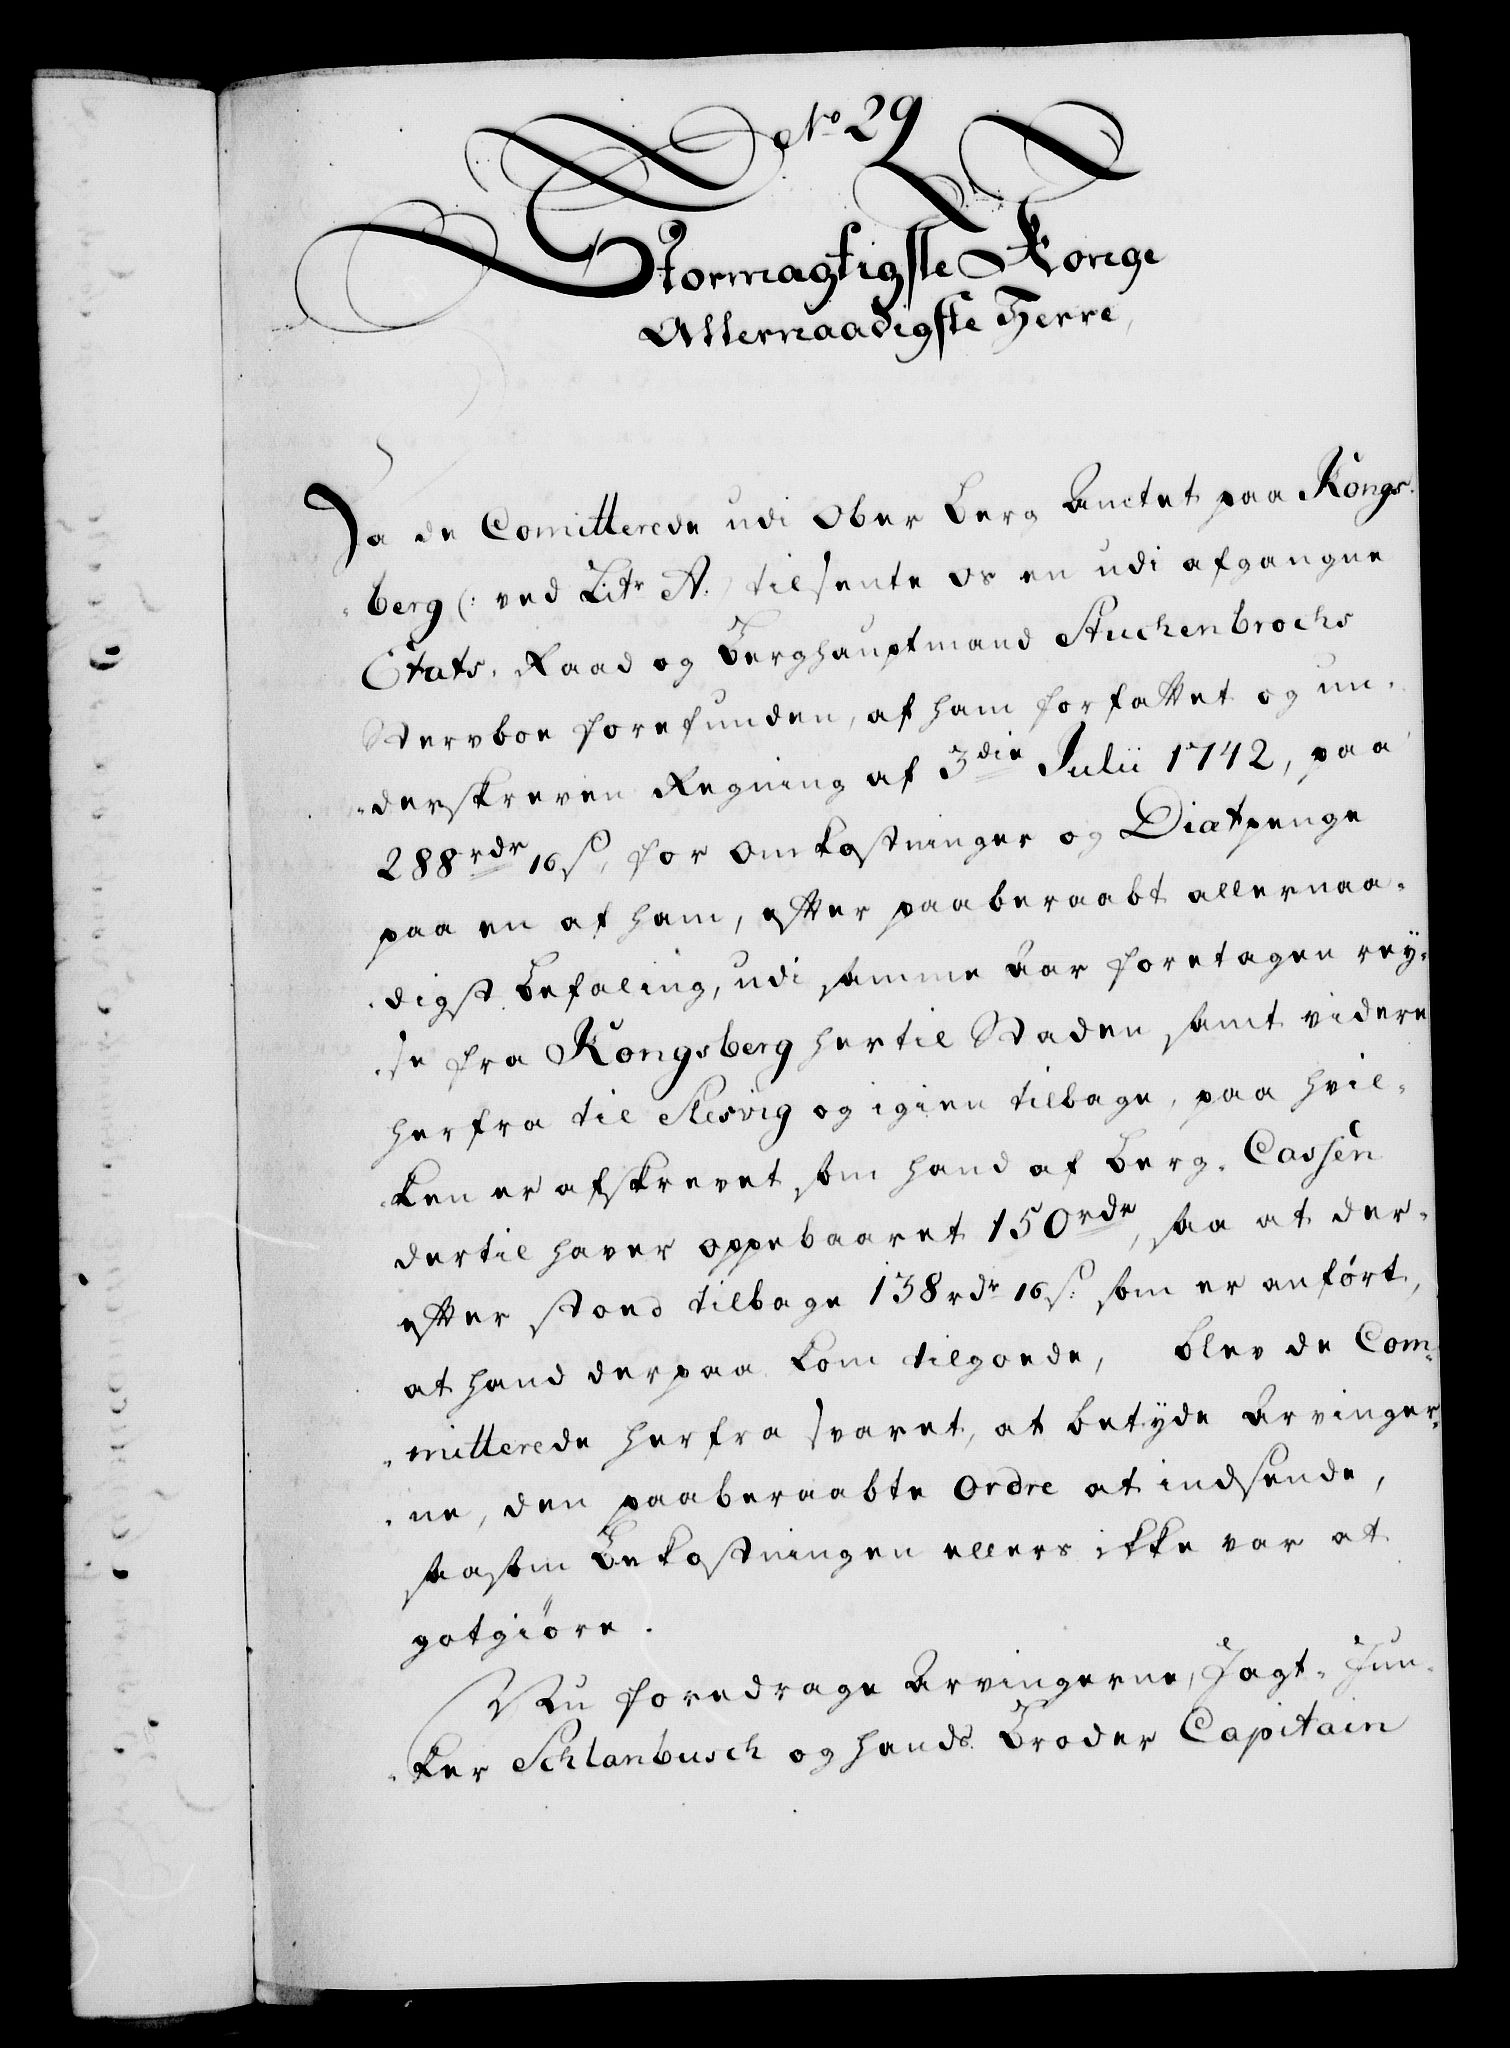 No 29
Stormagtigste Konge
Allernaadigste Herre,
Da de Comitterede udi Ober Berg Amtet paa Kongs-
berg (: ved Litr A. / tilsente os en udi afgangne
Etats-Raad og Berghauptmand Stuckenbrocks
Stervboe forefunden, af ham forfattet og un-
derskreven Regning af 3die Julii 1742, paa
288 rdr 16 ß, for Omkostninger og Diætpenge
paa en af ham, efter paaberaabt allernaa-
digst Befaling, udi samme Aar foretagen rey-
se fra Kongsberg hertil Staden samt videre
herfra til Slesvig og igien tilbage, paa hvil-
ken er afskrevet som hand af Berg-Cassen
dertil haver oppebaaret 150 rdr, saa at der-
efter stoed tilbage 138 rdr 16 ß. som er anført,
at hand derpaa kom tilgoede, blev de Com-
mitterede herfra svaret, at betyde Arvinger-
ne, den paaberaabte Ordre at indsende,
saasom Bekostningen ellers ikke var at
gotgiöre.
Nu foredrage Arvingerne, Jagt-Jun-
ker Schlanbusch og hands Broder Capitain